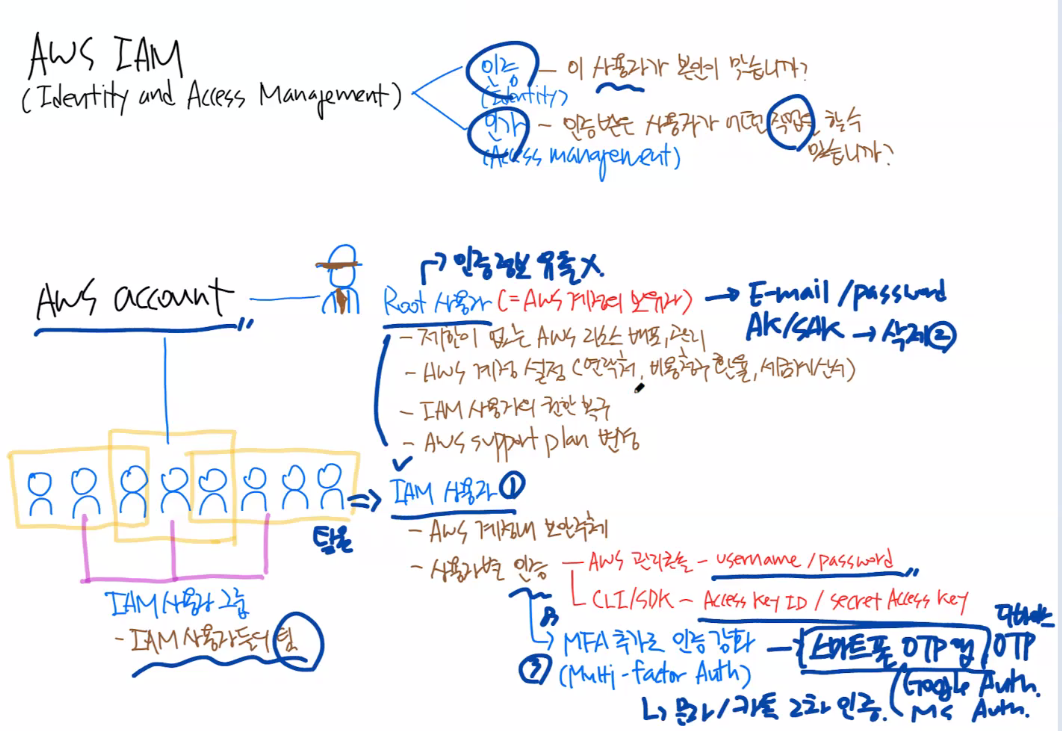 AWS IAM
(Identity and Access Management)
인증 - 이 사용자가 본인이 맞습니까?
(Identity)
인가 - 인증받은 사용자가 어떤 작업을 할 수
있습니까?
(Access management)
인증정보 유출 X.
AWS account
Root 사용자 (= AWS 계정의 보유자) → E-mail / password
AK/SAK → 삭제 ②
- 제한이 없는 AWS 리소스 배포, 관리
- AWS 계정 설정 (연락처, 비용청구 환율,
- IAM 사용자의 권한 복구
- AWS support plan 변경
IAM 사용자 ①
- AWS 계정내 보안주체
- 사용자별 인증
- AWS 관리콘솔 - username / password
CLI/SDK - Access Key ID / secret Access Key
MFA 추가로 인증 강화 - 스마트폰 OTP 앱 / OTP
③ (Multi-factor Auth)
Google Auth.
MS Auth.
문자 / 카톡 2차 인증.
IAM 사용자 그룹
- IAM 사용자들의 팀